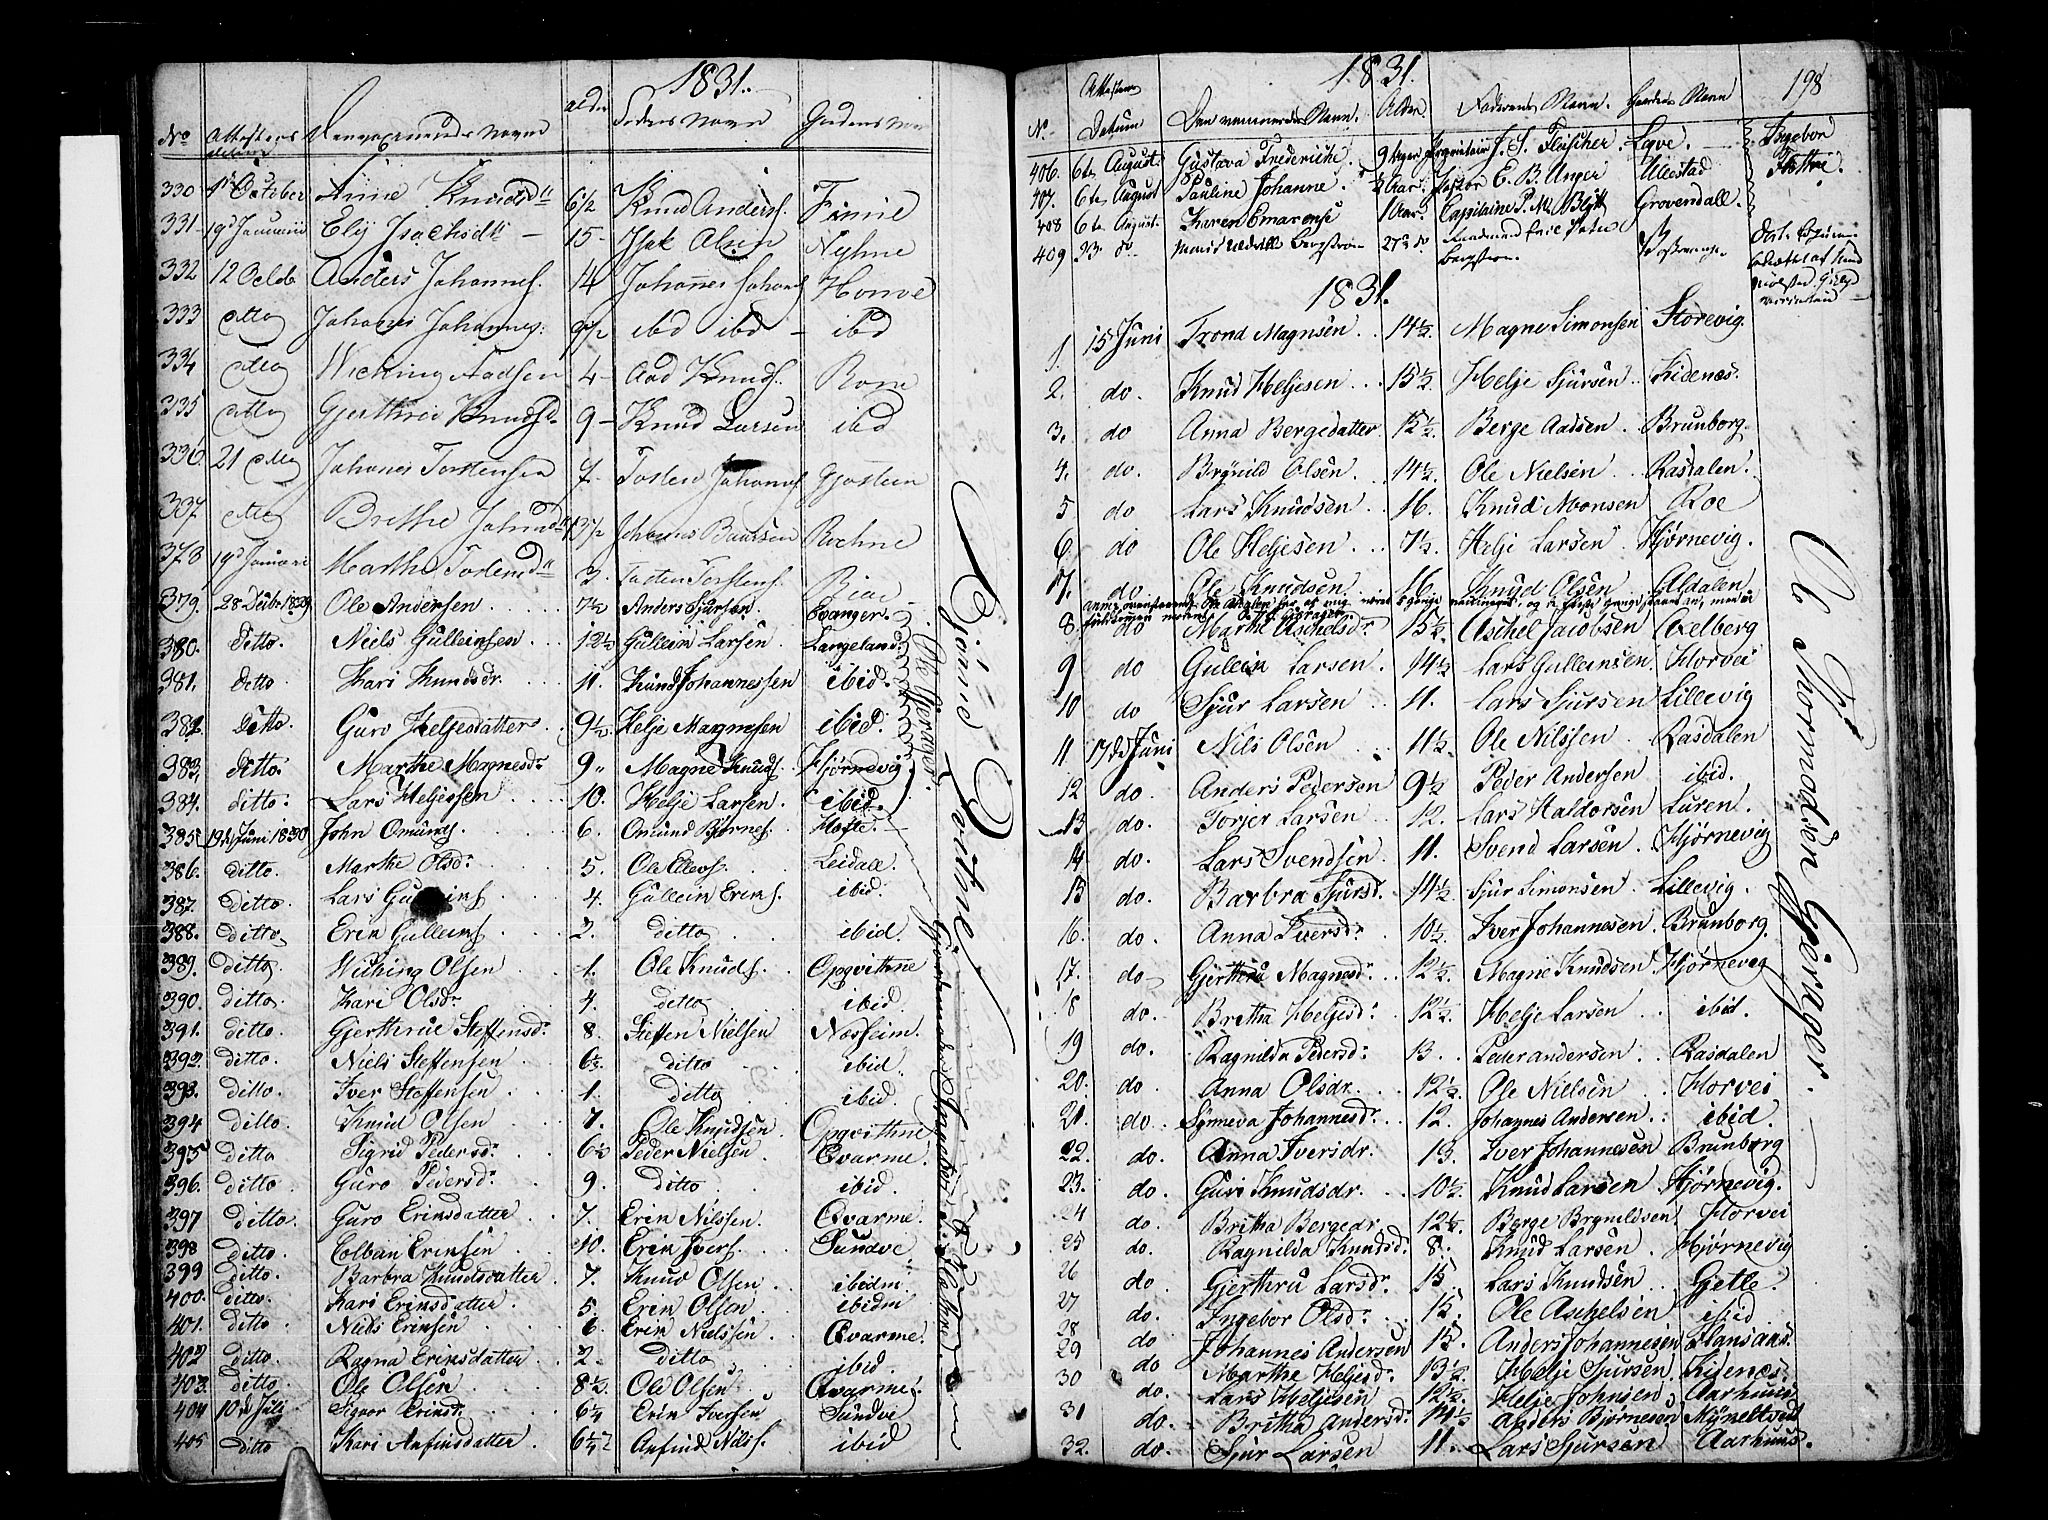 1831.
No Attestens datum navn alder Fadrens Navn Gaardens navn
330 October Anne Knudsd. 6 1/2 Knud Anders.
331 19d Januarii Eli Isachsdtt 15 Isak Olsen Nyhne
332 12 Octob. Anders Johannes. 14 Johannes Johans Honve
333 ditto Johanes Johannes. 9 1/2 ibd ibd ibd
334 ditto Wiching Aadsen 4 Aad Knuds. Rone
335 ditto Gjerthrud Knudsd. 9 Knud Larsen ibd
336 21 ditto Johanes Torstensen 7 Tosten Johanns
337 ditto Brethe 13 1/2 Johanes Baarsen Rochne
378 19d Januari Marthe 3 Tosten Torstens.
379. 28 Decbr. 1829. Ole Andersen 7 1/2 Anders Sjursen. Evanger.
380. Ditto. Niels Gulleinsen 12 1/2 Gullein Larsen Langeland.
381. Ditto Kari Knudsdr. 11. Knud Johannessen ibid.
382. Ditto. Guro Heljesdatter 9 1/2 Helje Magnesen ibid.
383. ditto. Marthe Magnesdr. 9 Magne Knuds. Hjørnevig
384. ditto. Lars Heljessen 10. Helje Larsen ibid.
385 19de Juni 1830 John Omunds. 6. Omund Bjørnes.
386. ditto. Marthe Olsdr. 5. Ole Ellevs. Leidall.
387. ditto. Lars 4. Gullein Erics. ibid.
388. ditto Eric Gulleins. 2. ditto ibid.
389. ditto Wiching Olsen 1. Ole Knuds. Opqvithne
390. ditto. Kari Olsdr. 4. ditto ibid.
391. ditto. Gjerthrue Steffensdr. 8. Steffen Nielsen Næsheim.
392. ditto. Niels Steffensen 6 1/2. ditto ibid.
393. ditto. Iver Steffensen 1. ditto ibid.
394 ditto. Knud Olsen 7. Ole Knudsen Opqvithne
395 ditto Sigrid Pedersdr. 6 1/2 Peder Nielsen. Qvarme.
396. ditto. Guro Pedersd. 9. ditto. ibid.
397 ditto. Guro Ericsdatter 7. Eric Nilssen. Qvarme.
398 ditto. Colbein Ericsen 10. Eric Ivers. Sundve
399 ditto. Barbra Knudsdatter. 7. Knud Olsen. ibidm
400. ditto. Kari Ericsdatter. 5. Eric Olsen ibidm
401. ditto. Niels Ericsen. 6. Eric Nielssen. Qvarme.
402 ditto. Ragna Ericsdatter 2. ditto ibid.
403. ditto Ole Olsen 8 1/2. Ole Olsen Qvarme.
404 10de Juli Ericsd. 6 1/4 Eric Iversen Sundve
405 ditto Kari Anfinsdatter. 6 1/4 Anfind Nils. ibid
Ole Gjerager.
Bjørne Qvitne
Gjordemoder Ingebor
1831. 198
No. Attestens Datum Den vaccineredes Navn. Alder Fadrens Navn. Gaardens Navn
406. 6te August. Gustava Frederiche. 9 Uger J. S. Fleischer. Ingebor
407. 6te August Pauline Johanne. 1/2 Aar. Pastor E. B. Unger Ullestad
408 6te August. Karen Emarense 1 Aar. Capitaine P. M. Blytt Grovendall.
409 23. do
1831.
1. 15 Juni Trond Magnsen 14 1/2. Magne Simonsen Storevig.
2. do. Knud Heljesen 15 1/2. Helje Sjursen Kidenæs.
3. do Anna Bergedatter. 12 1/2. Berge Aadsen Brunborg.
4. do. Brynild Olsen 14 1/2. Ole Nielsen Rasdalen.
5 do Lars Knudsen 16. Knud Monsen Roe
6. do Ole Heljesen 7 1/2. Helje Larsen Hjørnevig.
7. do Ole Knudsen. 16. Knud Olsen Aldalen
8. do Marthe Aschelsdr. 15 1/2. Aschel Jacobsen Axelberg
9 do Gullein Larsen 14 1/2 Lars Gulleinsen Horvei
10 do Sjur Larsen 11. Lars Sjursen Lillevig
11 17de Juni Nils Olsen 11 1/2 Ole Nilssen Rasdalen
12 do. Anders Pedersen 9 1/2 Peder Andersen ibid.
13 do. Torjer Larsen 12. Lars Haldorsen Luren.
14 do. Lars Svendsen 11. Svend Larsen Hjørnevig
15 do. Barbra Sjursd. 14 1/2 Sjur Simonsen Lillevig.
16. do. Anna Iversdr. 10 1/2. Iver Johannesen Brunborg.
17. do Gjerthru Magnesdr. 12 1/2 Magne Knudsen Hjørnevig
18 do. Britha Heljesdr. 12 1/2. Helje Larsen ibid.
19 do. Ragnilda Pedersdr. 13. Peder andersen Rasdalen
20. do. Anna Olsdr. 12 1/2 Ole Nielsen Horvei
21. do. Synneva Johannesdr. 12. Johannes Andersen. ibid.
22. do. Anna Iversdr. 13. Iver Johannesen Brunborg
23. do. Guri Knudsdr. 10 1/2. Knud Larsen Hjørnevig.
24 do. Britha Bergedr. 12 1/2. Berge Brynildsen Horvei
25 do. Ragnilda Knudsdr. 8. Knud Larsen Hjørnevig
26 do. Gjerthru Larsdr. 15 Lars Knudsen Gjelle.
27 do. Ingebor Olsdr. 15. Ole Aschelsen ibid.
28 do Johannes Andersen 15. Anders Johannesen
29 do Marthe Heljesdr. 13 1/2. Helje Sjursen Kidenæs.
30 do. Lars Heljesen 12 1/2. Helje Johnsen Aarhuus
31 do. Britha Andersdr. 14 1/2 Anders Bjørnesen
32. do. Sjur Larsen 11. Lars Sjursen Aarhuus.
Ole Thormodsen Gjerager.